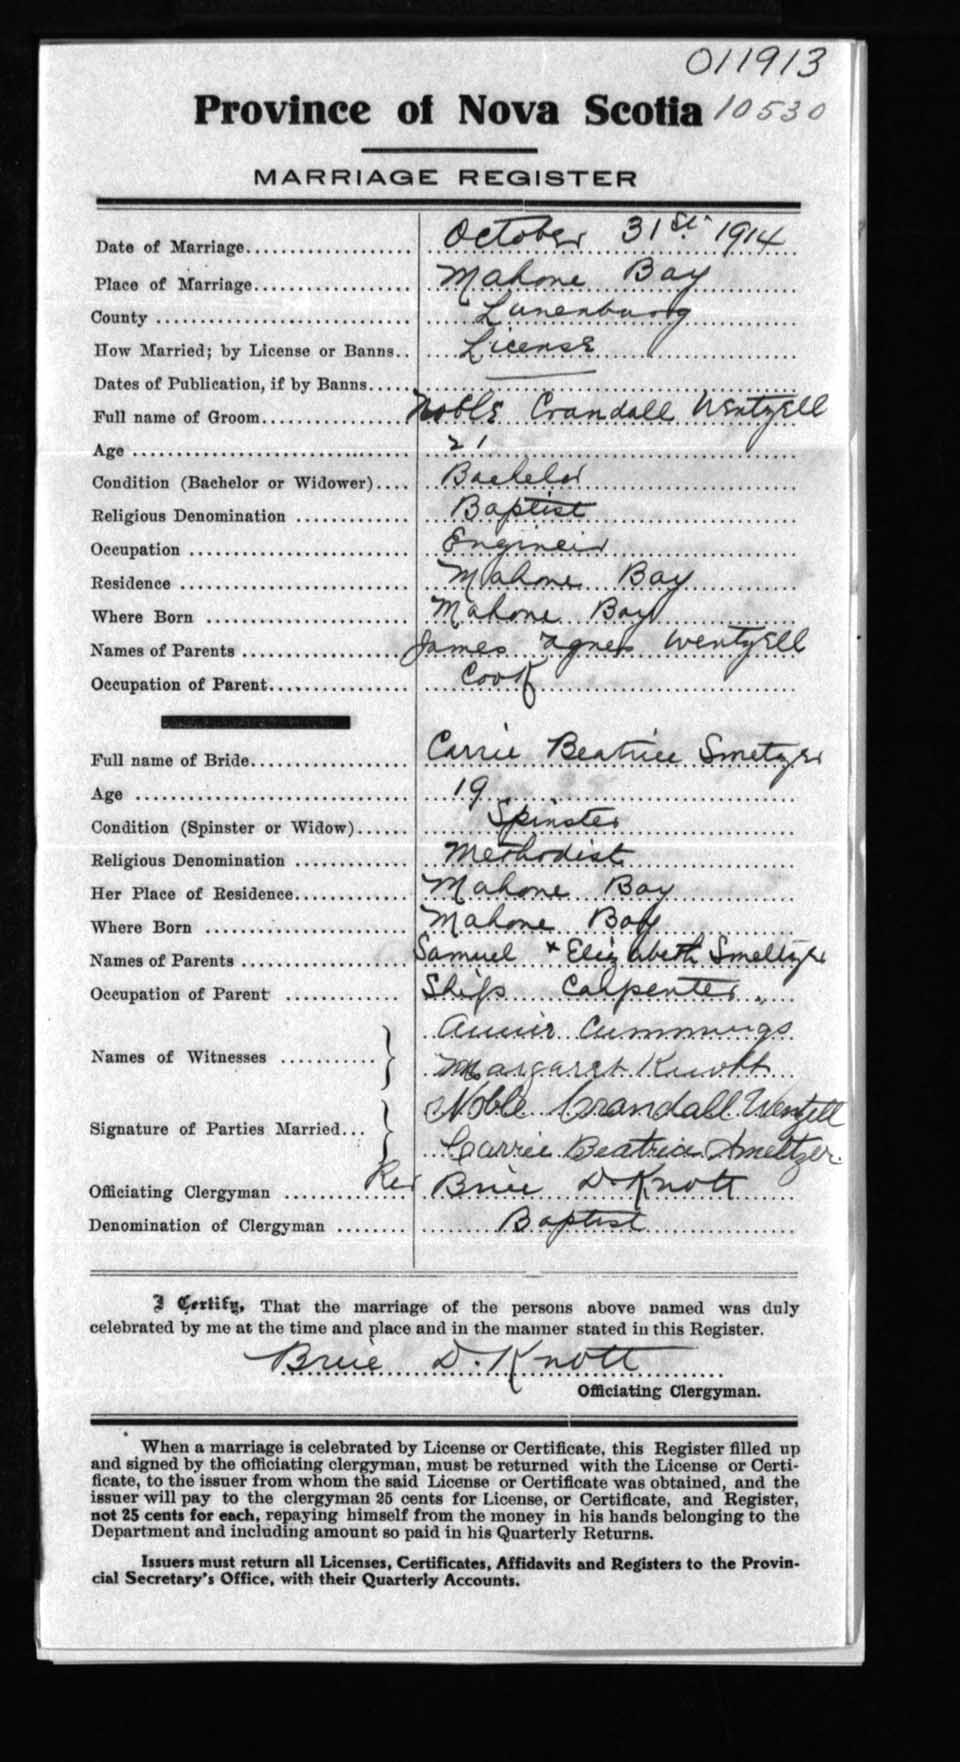 011913
Province of Nova Scotia 10530
MARRIAGE REGISTER
Date of Marriage October 31st. 1914
Place of Marriage Mahone Bay
County Lunenburg
How Married; by License or Banns License
Dates of Publication, if by Banns
Full name of Groom Noble Crandall Wentzell
Age 21
Condition (Bachelor or Widower) Bachelor
Religious Denomination Baptist
Occupation Engineer
Residence Mahone Bay
Where Born Mahone Bay
Names of Parents James + Agnes Wentzell
Occupation of Parent Cook
Full name of Bride Carrie Beatrice Smetzer
Age 19
Condition (Spinster or Widow) Spinster
Religious Denomination Methodist
Her Place of Residence Mahone Bay
Where Born Mahone Bay
Names of Parents Samuel + Elizabeth Smeltzer
Occupation of Parent Ships Carpenter
Annie Cummings
Names of Witnesses
Margaret Knott
Noble Crandall Wentzell
Signature of Parties Married
Carrie Beatrice Smeltzer.
Officiating Clergyman Rev Brice D Knott
Denomination of Clergyman Baptist
I Certify, That the marriage of the persons above named was duly
celebrated by me at the time and place and in the manner stated in this Register.
Brice D. Knott
Officiating Clergyman.
When a marriage is celebrated by License or Certificate, this Register filled up
and signed by the officiating clergyman, must be returned with the License or Certi-
ficate, to the issuer from whom the said License or Certificate was obtained, and the
issuer will pay to the clergyman 25 cents for License, or Certificate, and Register,
not 25 cents for each, repaying himself from the money in his hands belonging to the
Department and including amount so paid in his Quarterly Returns.
Issuers must return all Licenses, Certificates, Affidavits and Registers to the Provin-
cial Secretary's Office, with their Quarterly Accounts.